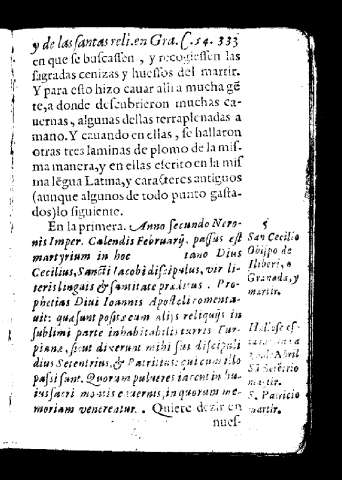 y de las santas reli. en Gra. C. 14. 333
en que se buscassen, y recogiessen las
sagradas cenizas y huessos del martir.
Y para esto hizo cauar alli a mucha gẽ
te, a donde descubrieron muchas ca-
uernas, algunas dellas terraplenadas a
mano. Y cauando en ellas, se hallaron
otras tres laminas de plomo de la mis-
ma manera, y en ellas escrito en la mis
ma lẽgua Latina, y caracteres antiguos
(aunque algunos de todo punto gasta-
dos) lo siguiente.
En la primera. Anno secundo Nero-
nis Imper. Calendis Februarij. passus est
martyrium in hoc tano Diuus
Cecilius, Sancti Iacobi discipulus, vir li-
teris linguis & sanitate præditus. Pro-
phetias Diui Ioannis Apostoli comenta-
uit: quæ sunt positæ cum alijs reliquijs in
sublimi parte inhabitabilis turris Tur-
pianæ, sicut dixerunt mihi sui discipuli
diuus Setentrius, & Patritius: qui cum illo
passi sunt. Quorum pulueres iacent in hu-
ius sacri montis cauernis, in quorum me-
moriam veneratur. Quiere dezir en
nues-
5
San Cecilio
Obispo de
Iliberi, o
Granada, y
martir.
Hallose es-
Abril
Sã Setẽrio
martir.
S. Patricio
martir.